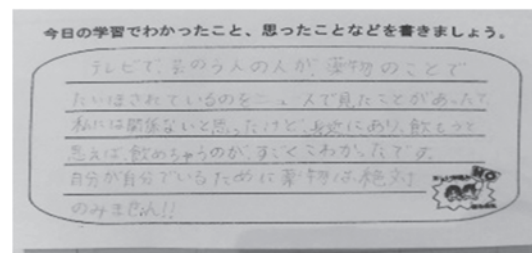 今日の学習でわかったこと、思ったことなどを書きましょう。
テレビで、芸のう人の人が、薬物のことで
たいほされているのをニュースで見たことがあったて
私には関係ないと思ったけど、身近にあり、飲もうと
思えば、飲めちゃうのが、すごくこわかったです。
自分が自分でいるために薬物は絶対
のみません!!
NO